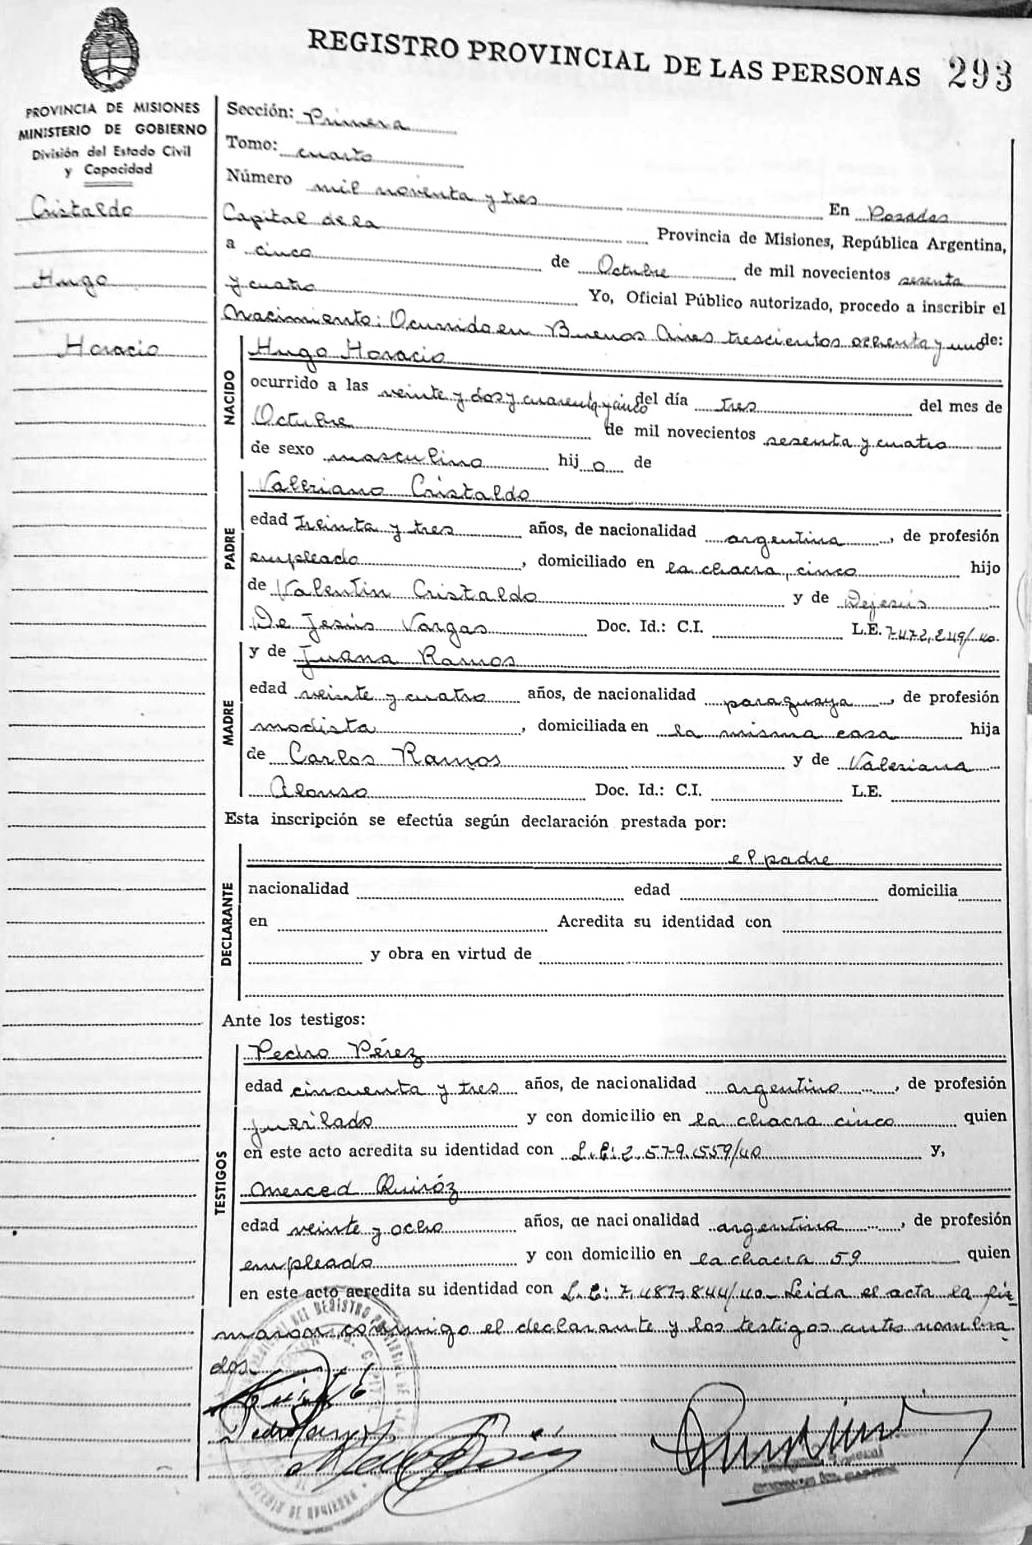 REGISTRO PROVINCIAL DE LAS PERSONAS 293
PROVINCIA DE MISIONES
MINISTERIO DE GOBIERNO
División del Estado Civil
y Capacidad
Cristaldo
Hugo
Horacio
Sección: Primera
Tomo: cuarto
Número mil noventa y tres En Posadas
Capital de la Provincia de Misiones, República Argentina,
a cinco de Octubre de mil novecientos sesenta
y cuatro Yo, Oficial Público autorizado, procedo a inscribir el
Nacimiento: Ocurrido en Buenos Aires trescientos ochenta y uno de:
NACIDO
Hugo Horacio
ocurrido a las veinte y dos y cuarenta y cinco del día tres del mes de
Octubre de mil novecientos sesenta y cuatro
de sexo masculino hijo de
PADRE
Valeriano Cristaldo
edad treinta y tres años, de nacionalidad argentina, de profesión
empleado, domiciliado en la chacra, cinco hijo
de Valentín Cristaldo y de Dejesús
De Jesús Vargas Doc. Id.: C.I. L.E. 7.472,249/40.
MADRE
y de Juana Ramos
edad veinte y cuatro años, de nacionalidad paraguaya, de profesión
modista, domiciliada en la misma casa hija
de Carlos Ramos y de Valeriana
Alonso Doc. Id.: C.I. L.E.
Esta inscripción se efectúa según declaración prestada por:
DECLARANTE
el padre
nacionalidad edad domicilia
en Acredita su identidad con
y obra en virtud de
Ante los testigos:
TESTIGOS
Pedro Pérez
edad cincuenta y tres años, de nacionalidad argentino, de profesión
jubilado y con domicilio en la chacra cinco quien
en este acto acredita su identidad con L.E: 2.579.559/40 y,
Merced Quiróz
edad veinte y ocho años, de nacionalidad argentina, de profesión
empleado y con domicilio en la chacra 59 quien
en este acto acredita su identidad con L.E: 7,487,844/40- Leida el acta la fir
maron conmigo el declarante y los testigos antes nombra
dos